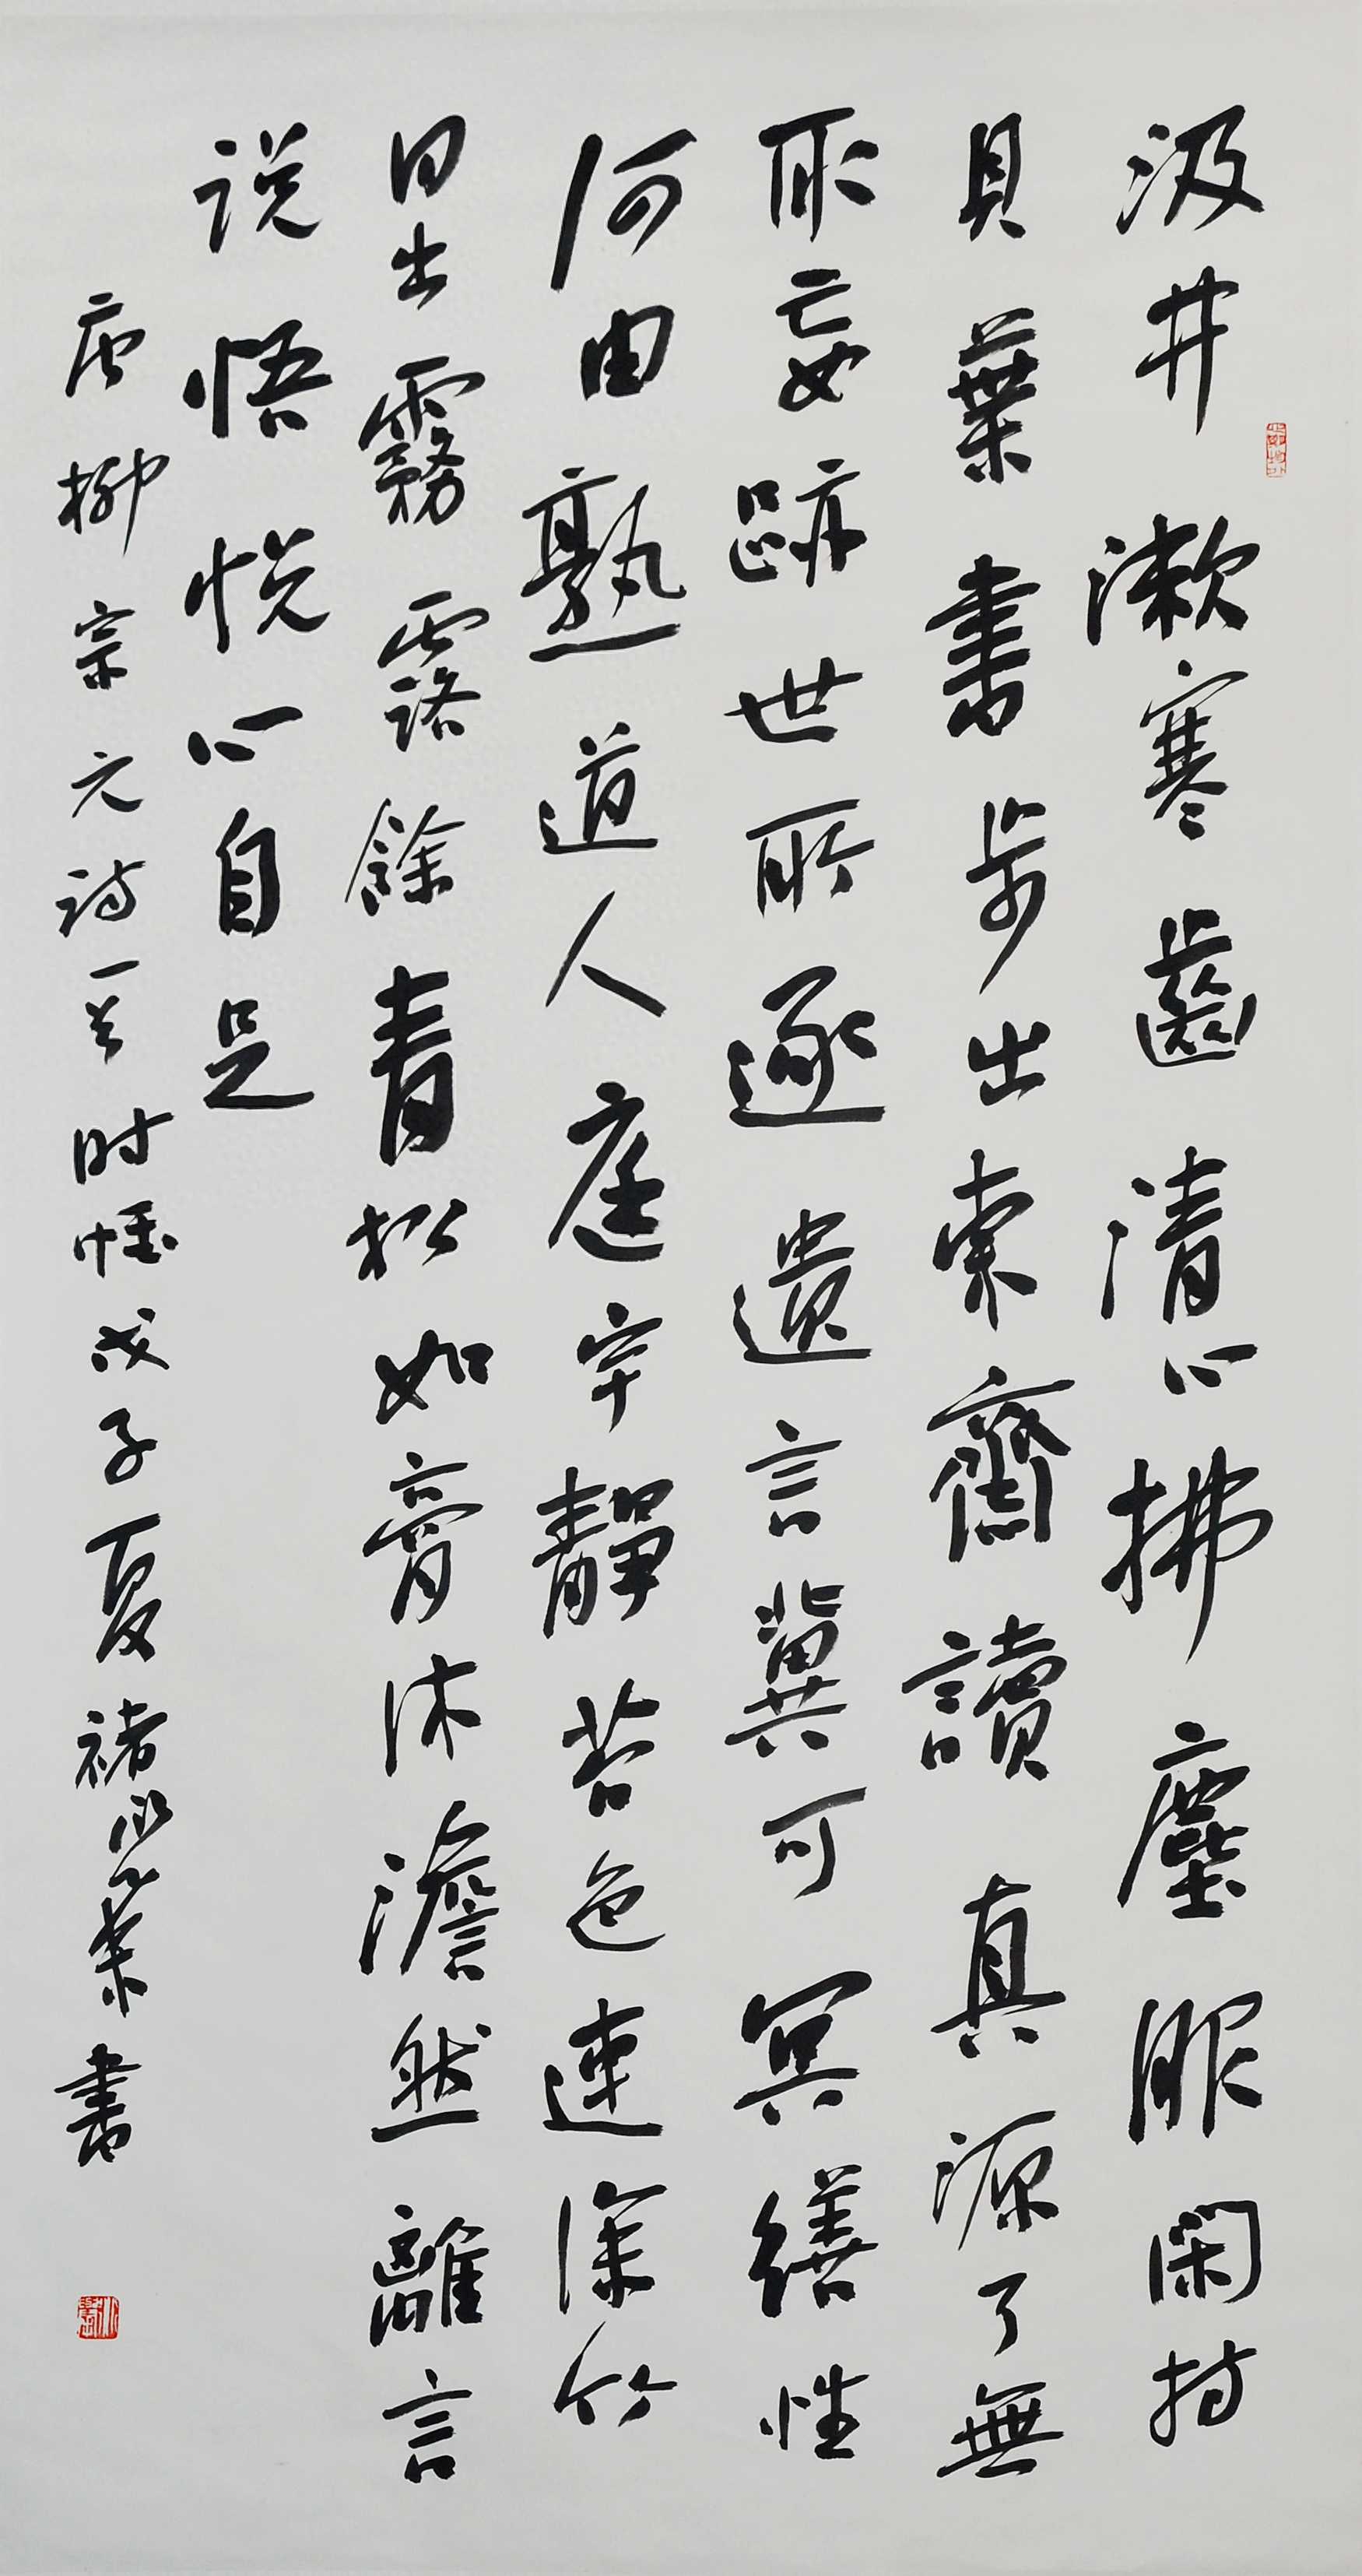 汲井漱寒齒清心拂塵服閑持
貝葉書步出東齋讀真源了無
取妄跡世所逐遺言冀可冥繕性
何由熟道人庭宇靜苔色連深竹
日出霧露餘青松如膏沐澹然離言
说悟悦心自足
唐柳宗元诗一首时值戊子夏褚宗業書